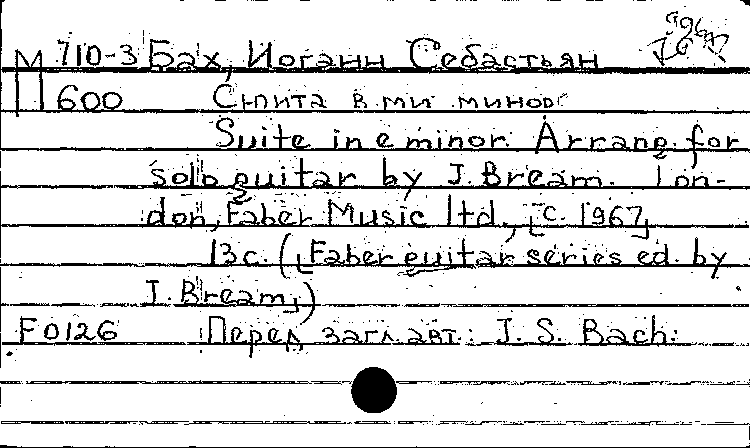 М 710-3 Бах, Иоганн Себастьян
П 600 Сюита в ми минор
Suite in e minor. Arrang. for
solo guitar by J. Bream. Lon-
don, Faber Music ltd., [c. 1967]
13 с. ([Faber guitar series ed. by
J. Bream])
F0126 Перед загл. авт.: J. S. Bach.